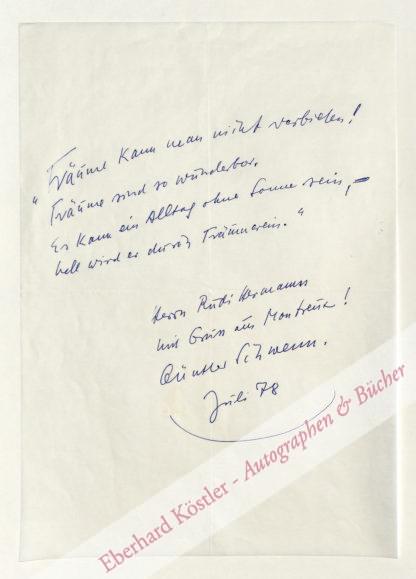 "Träume kann man nicht verbieten!
Träume sind so wunderbar.
Es kann ein Alltag ohne Sonne sein, –
hell wird er durch Träumerein."
Herrn Rudi Hermanns
mit Gruss aus Montreux!
Günther Schwenn.
Juli 78
Eberhard Köstler - Autographen & Bücher